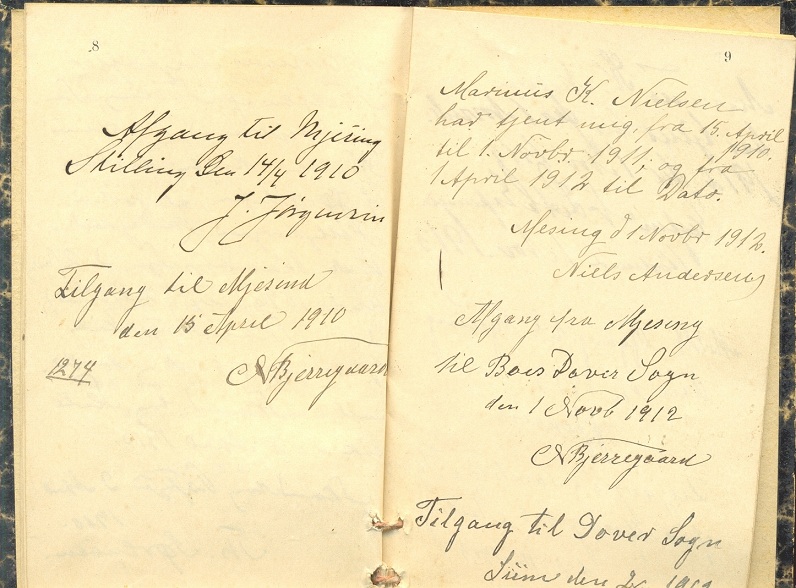 8
Afgang til Mjesing
Stilling Den 14/4 1910
J. Jørgensen
Tilgang til Mjesind
den 15 April 1910
1274
NBjerregaard
9
Marinus K. Nielsen
har tjent mig, fra 15. April
1910.
til 1. Novbr. 1911, og fra
1 April 1912 til Dato.
Mesing d 1 Novbr 1912.
Niels Andersen
Afgang fra Mjesing
til Boes Dover Sogn
den 1 Novb 1912
NBjerregaard
Tilgang til Dover Sogn
Siim den 2